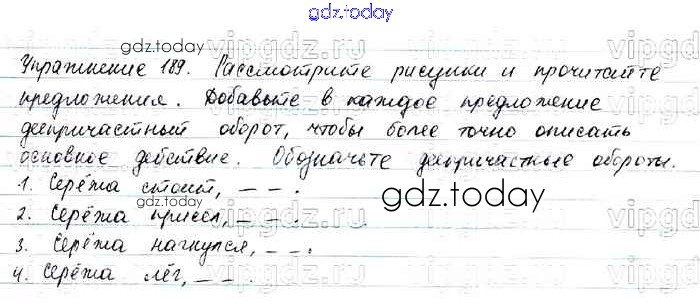 gdz.today
gdz.today
Упражнение 189. Рассмотрите рисунки и прочитайте
предложения. Добавьте в каждое предложение
деепричастный оборот, чтобы более точно описать
основное действие. Обозначьте деепричастные обороты.
1. Серёжа стоит, – – .
2. Серёжа присел, – – .
3. Серёжа нагнулся, – – .
4. Серёжа лёг, – – .
gdz.today
gdz.today